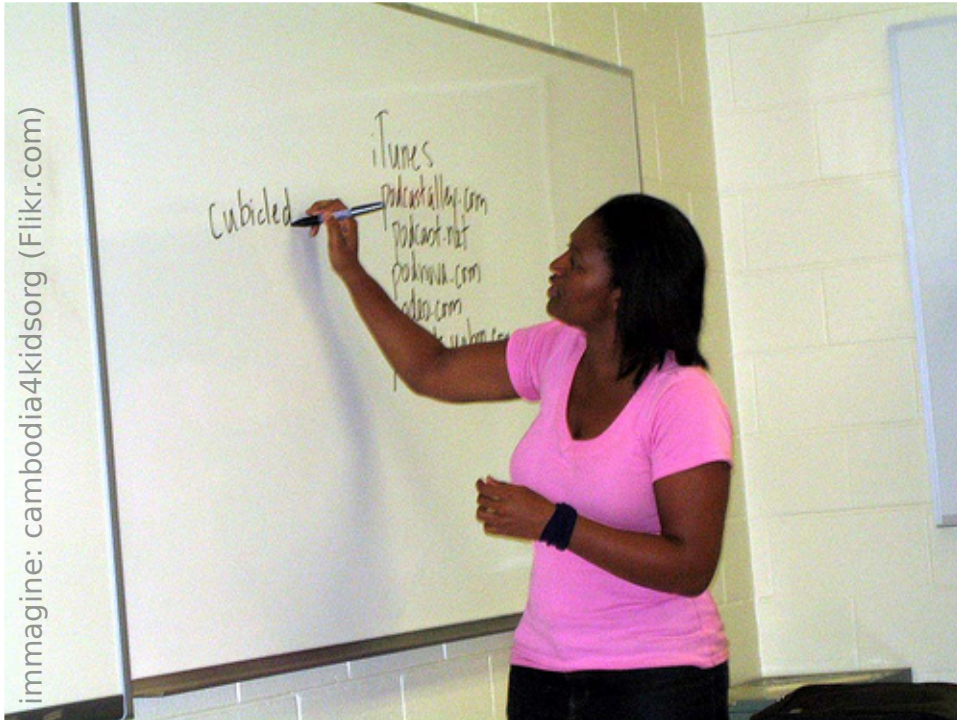 immagine: cambodia4kidsorg (Flikr.com)
iTunes
podcastalley.com
Cubicled
podcast.net
podnova.com
odeo.com